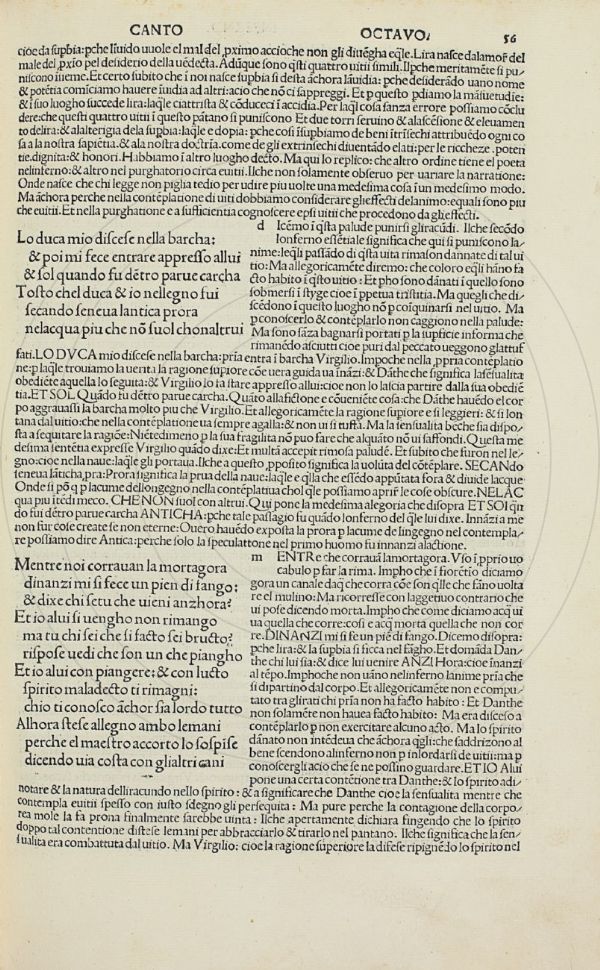 CANTO OCTAVO. 56
cioe da supbia: pche līuido uuole el mal del pximo accioche non gli diuēgha eqle. Lira nasce dalamor del
male del pxīo pel desiderio della uēdecta. Adūque sono qsti quattro uitii simili. Ilpche meritamēte si pu-
niscono īsieme. Et certo subito che ī noi nasce supbia si desta āchora lāuidia: pche desiderādo uano nome
& potētia comīciamo hauere īuidia ad altri: acio che nō ci sappreggi. Et p questo pdiamo la māsuetudie:
& ī suo luogho succede lira: laqle ciattrista & cōduceci ī accidia. Per laql cosa sanza errore possiamo cōclu
dere: che questi quattro uitii ī questo pātano si puniscono. Et due torri seruino & alascēsione & eleuamen
to delira: & alalterigia dela supbia: laqle e dopia: pche cosi īsupbiamo de beni ītrīsechi attribuēdo ogni co
sa a la nostra sapiētia. & ala nostra doctria. come de gli extrinsechi diuentādo elati: per le riccheze. poten
tie. dignita: & honori. Habbiamo ī altro luogho decto. Ma qui lo replico: che altro ordine tiene el poeta
nelinferno: & altro nel purghatorio circa euitii. Ilche non solamente obseruo per uariare la narratione:
Onde nasce che chi legge non piglia tedio per udire piu uolte una medesima cosa ī un medesimo modo.
Ma āchora perche nella contēplatione di uiti dobbiamo considerare gli effecti del animo: equali sono piu
che euitii. Et nella purghatione e a sufficientia cognoscere epsi uitii che procedono da gli effecti.
Lo duca mio discese nella barcha:
& poi mi fece entrare appresso allui
& sol quando fu dētro parue carcha
Tosto chel duca & io nellegno fui
secando seneua lantica prora
nelacqua piu che nō suol chonaltrui
d Icēmo ī qsta palude punirsi gliracūdi. Ilche secōdo
lonferno essētiale significa che qui si puniscono la-
nime: leqli passādo di qsta uita rimason dannate di tal ui
tio: Ma allegoricamēte diremo: che coloro eqli hāno fa
cto habito ī qsto uitio: Et pho sono dānati ī quello sono
sobmersi ī styge cioe ī ppetua tristitia. Ma quegli che di-
scēdono ī questo luogho nō p coīquinarsi nel uitio. Ma
p conoscerlo & contēplarlo non caggiono nella palude:
Ma sono sāza bagnarsi portati p la supficie informa che
rimanēdo asciutti cioe puri dal peccato ueggono glattuf
fati. LO DVCA mio discese nella barcha: pria entra ī barcha Virgilio. Impoche nella ppria contēplatio
ne: p laqle trouiamo la uerita la ragione supiore cōe uera guida ua ināzi: & Dāthe che significa lasēsualita
obediēte aquella lo seguita: & Virgilio lo fa stare appresso allui: cioe non lo lascia partire dalla sua obediē
tia. ET SOL Quādo fu dētro parue carcha. Quāto allafictione e cōueniēte cosa: che Dāthe hauēdo el cor
po aggrauassi la barcha molto piu che Virgilio. Et allegoricamēte la ragione supiore e si leggieri: & si lon
tana dal uitio: che nella contēplatione ua sempre agalla: & non ui si tuffa. Ma la sensualita bēche sia dispo-
sta a sequitare la ragiōe: Niētedimeno p la sua fragilita nō puo fare che alquāto nō ui saffondi. Questa me
desima sentētia expresse Virgilio quādo dixe: Et multā accepit rimosa paludē. Et subito che furon nel le-
gno: cioe nella naue: laqle gli portaua. Ilche a questo pposito significa la uolūta del cōtēplare. SECANdo
seneua lāticha pra: Prora significa la prua della naue: laqle e qlla che essēdo appūtata fora & diuide lacque
Onde si pō q p lacume dellongegno nella contēplatiua chol qle possiamo aprir le cose obscure. NELAC
qua piu itēdi meco. CHE NON suol con altrui. Qui pone la medesima alegoria che disopra ET SOI qn
do fui dētro parue carcha ANTICHA: pche tale passagio fu quādo lonferno del qle lui dixe. Innāzi a me
non fur cose create se non eterne: Ouero hauēdo exposita la prora p lacume de lingegno nel contempla-
re possiamo dire Antica: perche solo la speculattone nel primo huomo fu innanzi alactione.
Mentre noi corrauan la mortagora
dinanzi mi si fece un pien di fango:
& dixe chi setu che uieni anzhora?
Et io alui si uengho non rimango
ma tu chi sei che si facto sei bructo?
rispose uedi che son un che piangho
Et io alui con piangere: & con lucto
spirito maladecto ti rimagni:
chio ti conosco āchor sia lordo tutto
Alhora stese allegno ambo lemani
perche el maestro accorto lo sospise
dicendo uia costa con glialtri cani
m ENTRE che corrauā lamortagora. Vso ī pprio uo
cabulo p far la rima. Impho che ī fiorētio diciamo
gora un canale daq che corra cōe son qlle che fāno uolta
re el mulino: Ma ricorresse con laggetiuo contrario che
ui pose dicendo morta. Impho che come diciamo acq ui
ua quella che corre: cosi e acq morta quella che non cor
re. DINANZI mi si fe un piē di fango. Dicemo disopra:
pche lira: & la supbia si ficca nel fāgho. Et domāda Dan-
the chi lui sia: & dice lui uenire ANZI Hora: cioe inanzi
al tēpo. Imphoche non uāno nelinferno lanime pria che
si dipartino dal corpo. Et allegoricamēte non e compu-
tato tra glirati chi pria non ha facto habito: Et Danthe
non solamēte non hauea facto habito: Ma era disceso a
contēplarlo p non exercitare alcuno acto. Ma lo spirito
dānato non intēdeua che āchora qgli: che saddrizono al
bene scendono alinferno non p inlordarsi de uitii: ma p
conoscergli acio che se ne possino guardare. ET IO Alui
pone una certa contētione tra Danthe: & lo spirito adi-
notare & la natura delliracundo nello spirito: & a significare che Danthe cioe la sensualita mentre che
contempla euitii spesso con iusto sdegno gli persequita: Ma pure perche la contagione della corpo-
rea mole la fa prona finalmente sarebbe uinta: Ilche apertamente dichiara fingendo che lo spirito
doppo tal contentione distese lemani per abbracciarlo & tirarlo nel pantano. Ilche significa che la sen-
sualita era combattuta dal uitio. Ma Virgilio: cioe la ragione superiore la difese ripignēdo lo spirito nel